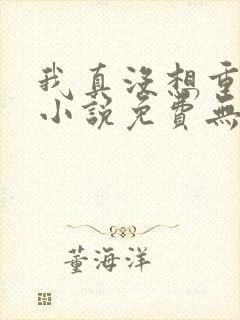 我真没想重
小说免費無
董海洋